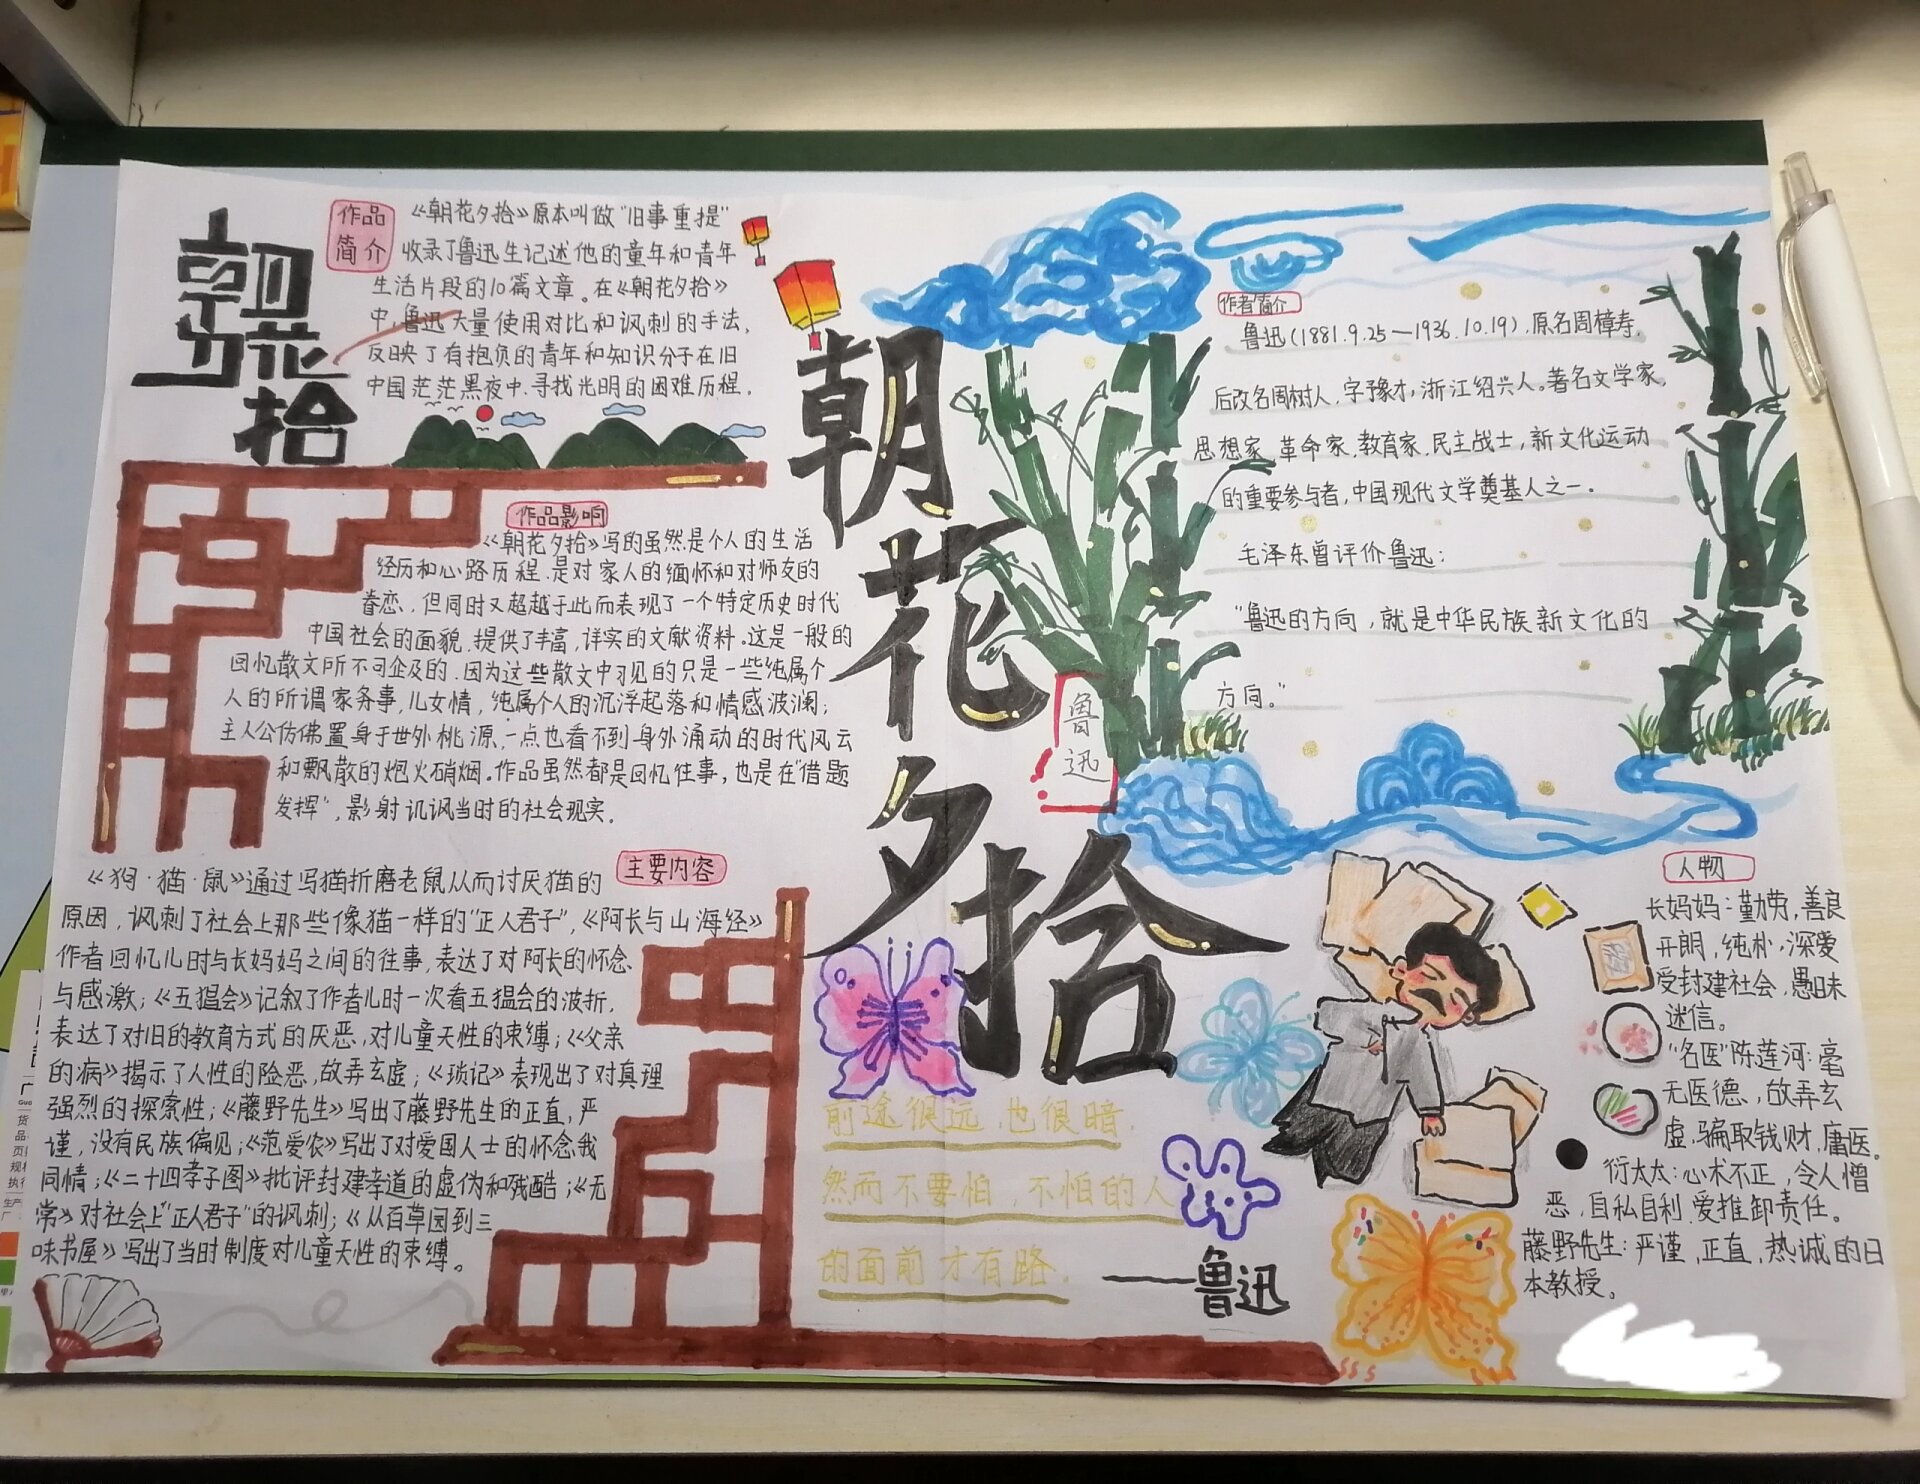 朝花夕拾
作品
简介
《朝花夕拾》原本叫做"旧事重提"
收录了鲁迅生记述他的童年和青年
生活片段的10篇文章。在《朝花夕拾》
中,鲁迅大量使用对比和讽刺的手法,
反映了有抱负的青年和知识分子在旧
中国茫茫黑夜中.寻找光明的困难历程.
作品影响
《朝花夕拾》写的虽然是个人的生活
经历和心路历程.是对家人的缅怀和对师友的
眷恋,但同时又超越于此而表现了一个特定历史时代
中国社会的面貌,提供了丰富,详实的文献资料。这是一般的
回忆散文所不可企及的.因为这些散文中习见的只是一些纯属个
人的所谓家务事,儿女情,纯属个人的沉浮起落和情感波澜;
主人公仿佛置身于世外桃源,一点也看不到身外涌动的时代风云
和飘散的炮火硝烟。作品虽然都是回忆往事,也是在"借题
发挥",影射讥讽当时的社会现实.
主要内容
《狗·猫·鼠》通过写猫折磨老鼠从而讨厌猫的
原因,讽刺了社会上那些像猫一样的"正人君子",《阿长与山海经》
作者回忆儿时与长妈妈之间的往事,表达了对阿长的怀念
与感激;《五猖会》记叙了作者儿时一次看五猖会的波折,
表达了对旧的教育方式的厌恶,对儿童天性的束缚;《父亲
的病》揭示了人性的险恶,故弄玄虚;《琐记》表现出了对真理
强烈的探索性;《藤野先生》写出了藤野先生的正直,严
谨,没有民族偏见;《范爱农》写出了对爱国人士的怀念我
同情;《二十四孝子图》批评封建孝道的虚伪和残酷;《无
常》对社会上"正人君子"的讽刺;《从百草园到三
味书屋》写出了当时制度对儿童天性的束缚。
朝花夕拾
鲁迅
前途很远,也很暗.
然而不要怕,不怕的人
的面前才有路.
——鲁迅
作者简介
鲁迅(1881.9.25—1936.10.19).原名周樟寿,
后改名周树人,字豫才,浙江绍兴人。著名文学家,
思想家,革命家,教育家,民主战士,新文化运动
的重要参与者,中国现代文学奠基人之一.
毛泽东曾评价鲁迅:
"鲁迅的方向,就是中华民族新文化的
方向。"
人物
长妈妈:勤劳,善良
开朗,纯朴,深爱
受封建社会,愚昧
迷信。
"名医"陈莲河:毫
无医德,故弄玄
虚.骗取钱财,庸医。
衍太太:心术不正,令人憎
恶,自私自利.爱推卸责任。
藤野先生:严谨,正直,热诚的日
本教授。